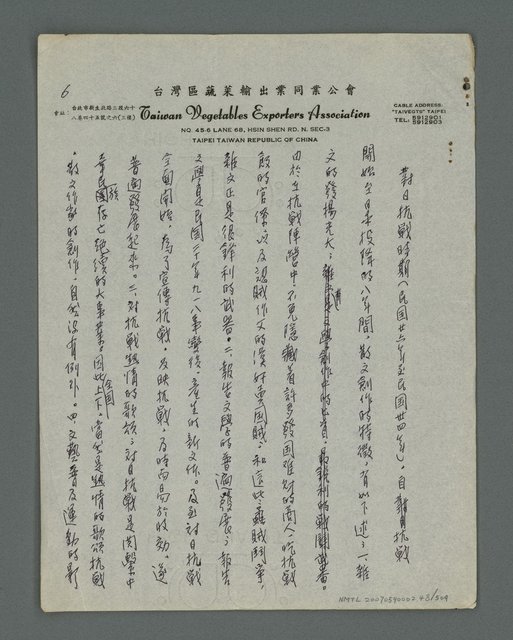 6
台灣區蔬菜輸出業同業公會
會址：台北市新生北路三段六十八巷四十五號之六(三樓)
Taiwan Vegetables Exporters Association
NO. 45-6 LANE 68, HSIN SHEN RD. N. SEC-3
TAIPEI TAIWAN REPUBLIC OF CHINA
CABLE ADDRESS:
"TAIVEGTS" TAIPEI
TEL: 5912901
5912903
對日抗戰時期（民國廿六年至民國卅四年），自抗戰
開始至日本投降的八年間，散文創作的特徵，有以下述：一、雜
文的發揚光大：
由於在抗戰陣營中，不免隱藏着許多發國難財的商人，吃抗戰
飯的官僚，以及認賊作父的漢奸賣國賊，和這些蟊賊鬥爭，
雜文正是很鋒利的武器。二、報告文學的普遍發展：報告
文學是民國二十年九一八事變後，產生的新文体。及至對日抗戰
全面開始，為了宣傳抗戰，反映抗戰，及時而易於收効。遂
普遍發展起來。三、對抗戰熱情的歌頌：對日抗戰是關繫中
華民族存亡絕續的大事業。因此全國上下，當然是熱情的歌頌抗戰
，散文作家的創作，自然沒有例外。四、文藝普及運動的影
NMTL 20070540002.48/504